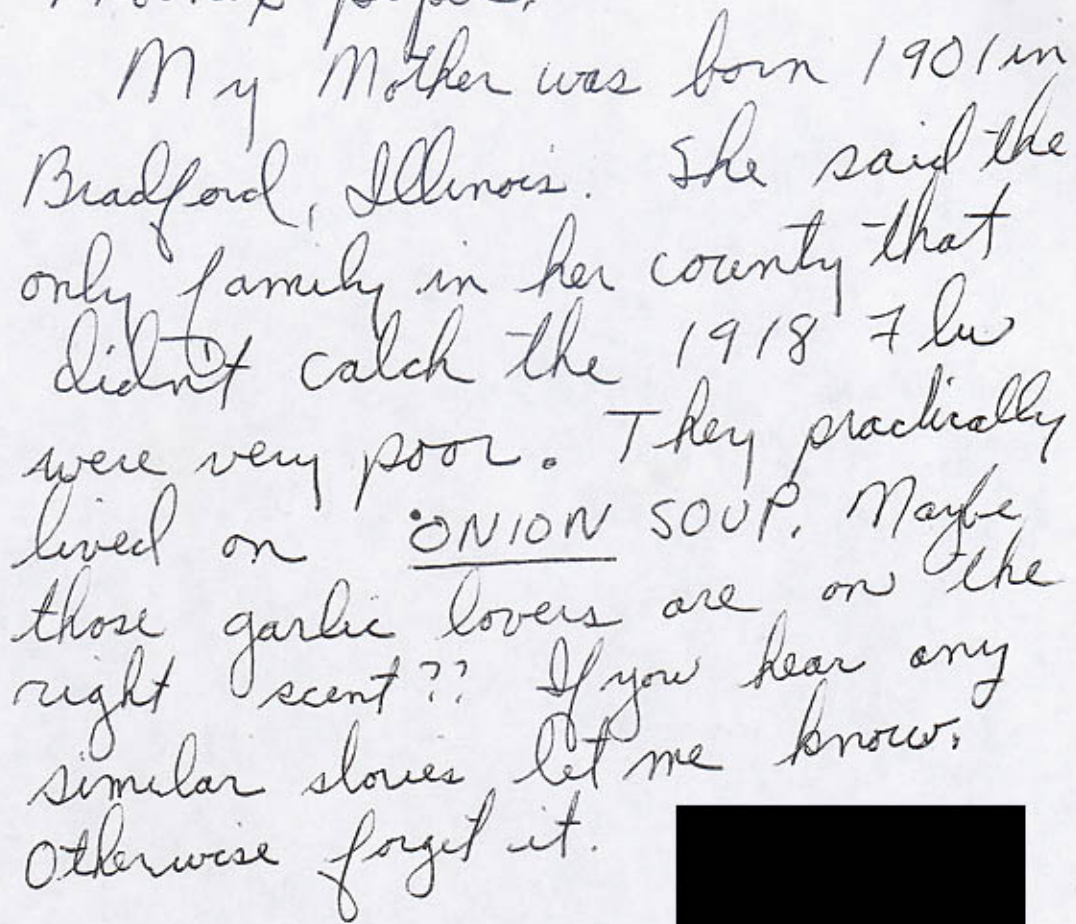 paper.
My Mother was born 1901 in
Bradford, Illinois. She said the
only family in her county that
didn't catch the 1918 Flu
were very poor. They practically
lived on ONION SOUP. Maybe
those garlic lovers are on the
right scent?? If you hear any
similar stories let me know.
Otherwise forget it.